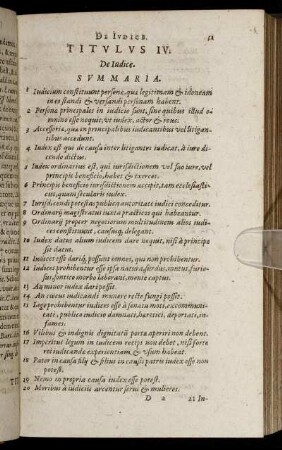 DE IVDICE.
TITVLVS IV.
De Iudice.
SVMMARIA.
1 Iudicium constituunt personæ, quæ legitimam & idoneam
in eo standi & versandi personam habent.
2 Personæ principales in iudicio sunt, sine quibus illud o-
mnino esse nequit, vt iudex, actor & reus.
3 Accessoriæ, quæ in principalibus iudicantibus vel litigan-
tibus accedunt.
4 Iudex est qui de causis inter litigantes iudicat, à iure di-
cendo dictus.
5 Iudex ordinarius est, qui iurisdictionem vel suo iure, vel
principis beneficio, habet & exercet.
6 Principis beneficio iurisdictionem accepit, tam ecclesiasti-
cus, quàm secularis iudex.
7 Iurisdicendi potestas publica autoritate iudici conceditur.
8 Ordinarij magistratus iuxta practicos qui habeantur.
9 Ordinarij propter negociorum multitudinem alios iudi-
ces constituunt, causasq́; delegant.
10 Iudex datus alium iudicem dare nequit, nisi à principe
sit datus.
11 Iudices esse dati possunt omnes, qui non prohibentur.
12 Iudices prohibentur esse ipsa natura surdus, mutus, furio-
sus, sontico morbo laborans, mente captus.
13 An minor iudex dari possit.
14 An cæcus iudicandi munere rectè fungi possit.
15 Lege prohibentur iudices esse à senatu moti, excommuni-
cati, publica iudicia damnati, banniti, deportati, in-
fames.
16 Vilibus & indignis dignitatū porta aperiri non debent.
17 Imperitus legum in iudicem recipi non debet, nisi forte
rei iudicandæ experientiam & vsum habeat.
18 Pater in causa filij & filius in causa patris iudex esse non
potest.
19 Nemo in propria causa iudex esse potest.
20 Moribus à iudiciis arcentur serui & mulieres.
D 2 21 In-